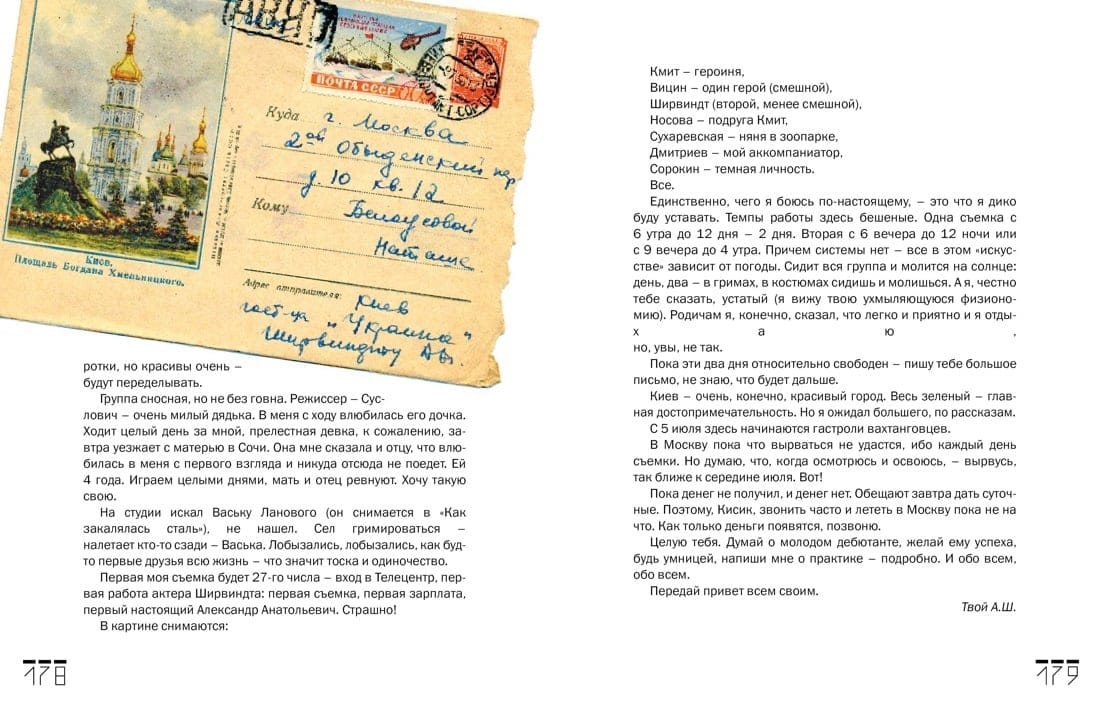 АВИА
ПОЧТА СССР
Куда
г. Москва
2ой Обыденский пер
д. 10 кв. 12
Кому
Белоусовой
Наташе
Киев.
Площадь Богдана Хмельницкого.
Адрес отправителя:
Киев
гост-ца "Украина"
Ширвиндту А.
ротки, но красивы очень –
будут переделывать.
Группа сносная, но не без говна. Режиссер – Сус-
лович – очень милый дядька. В меня с ходу влюбилась его дочка.
Ходит целый день за мной, прелестная девка, к сожалению, за-
втра уезжает с матерью в Сочи. Она мне сказала и отцу, что влю-
билась в меня с первого взгляда и никуда отсюда не поедет. Ей
4 года. Играем целыми днями, мать и отец ревнуют. Хочу такую
свою.
На студии искал Ваську Ланового (он снимается в «Как
закалялась сталь»), не нашел. Сел гримироваться –
налетает кто-то сзади – Васька. Лобызались, лобызались, как буд-
то первые друзья всю жизнь – что значит тоска и одиночество.
Первая моя съемка будет 27-го числа – вход в Телецентр, пер-
вая работа актера Ширвиндта: первая съемка, первая зарплата,
первый настоящий Александр Анатольевич. Страшно!
В картине снимаются:
178
Кмит – героиня,
Вицин – один герой (смешной),
Ширвиндт (второй, менее смешной),
Носова – подруга Кмит,
Сухаревская – няня в зоопарке,
Дмитриев – мой аккомпаниатор,
Сорокин – темная личность.
Все.
Единственно, чего я боюсь по-настоящему, – это что я дико
буду уставать. Темпы работы здесь бешеные. Одна съемка с
6 утра до 12 дня – 2 дня. Вторая с 6 вечера до 12 ночи или
с 9 вечера до 4 утра. Причем системы нет – все в этом «искус-
стве» зависит от погоды. Сидит вся группа и молится на солнце:
день, два – в гримах, в костюмах сидишь и молишься. А я, честно
тебе сказать, устатый (я вижу твою ухмыляющуюся физионо-
мию). Родичам я, конечно, сказал, что легко и приятно и я отды-
х а ю ,
но, увы, не так.
Пока эти два дня относительно свободен – пишу тебе большое
письмо, не знаю, что будет дальше.
Киев – очень, конечно, красивый город. Весь зеленый – глав-
ная достопримечательность. Но я ожидал большего, по рассказам.
С 5 июля здесь начинаются гастроли вахтанговцев.
В Москву пока что вырваться не удастся, ибо каждый день
съемки. Но думаю, что, когда осмотрюсь и освоюсь, – вырвусь,
так ближе к середине июля. Вот!
Пока денег не получил, и денег нет. Обещают завтра дать суточ-
ные. Поэтому, Кисик, звонить часто и лететь в Москву пока не на
что. Как только деньги появятся, позвоню.
Целую тебя. Думай о молодом дебютанте, желай ему успеха,
будь умницей, напиши мне о практике – подробно. И обо всем,
обо всем.
Передай привет всем своим.
Твой А.Ш.
179